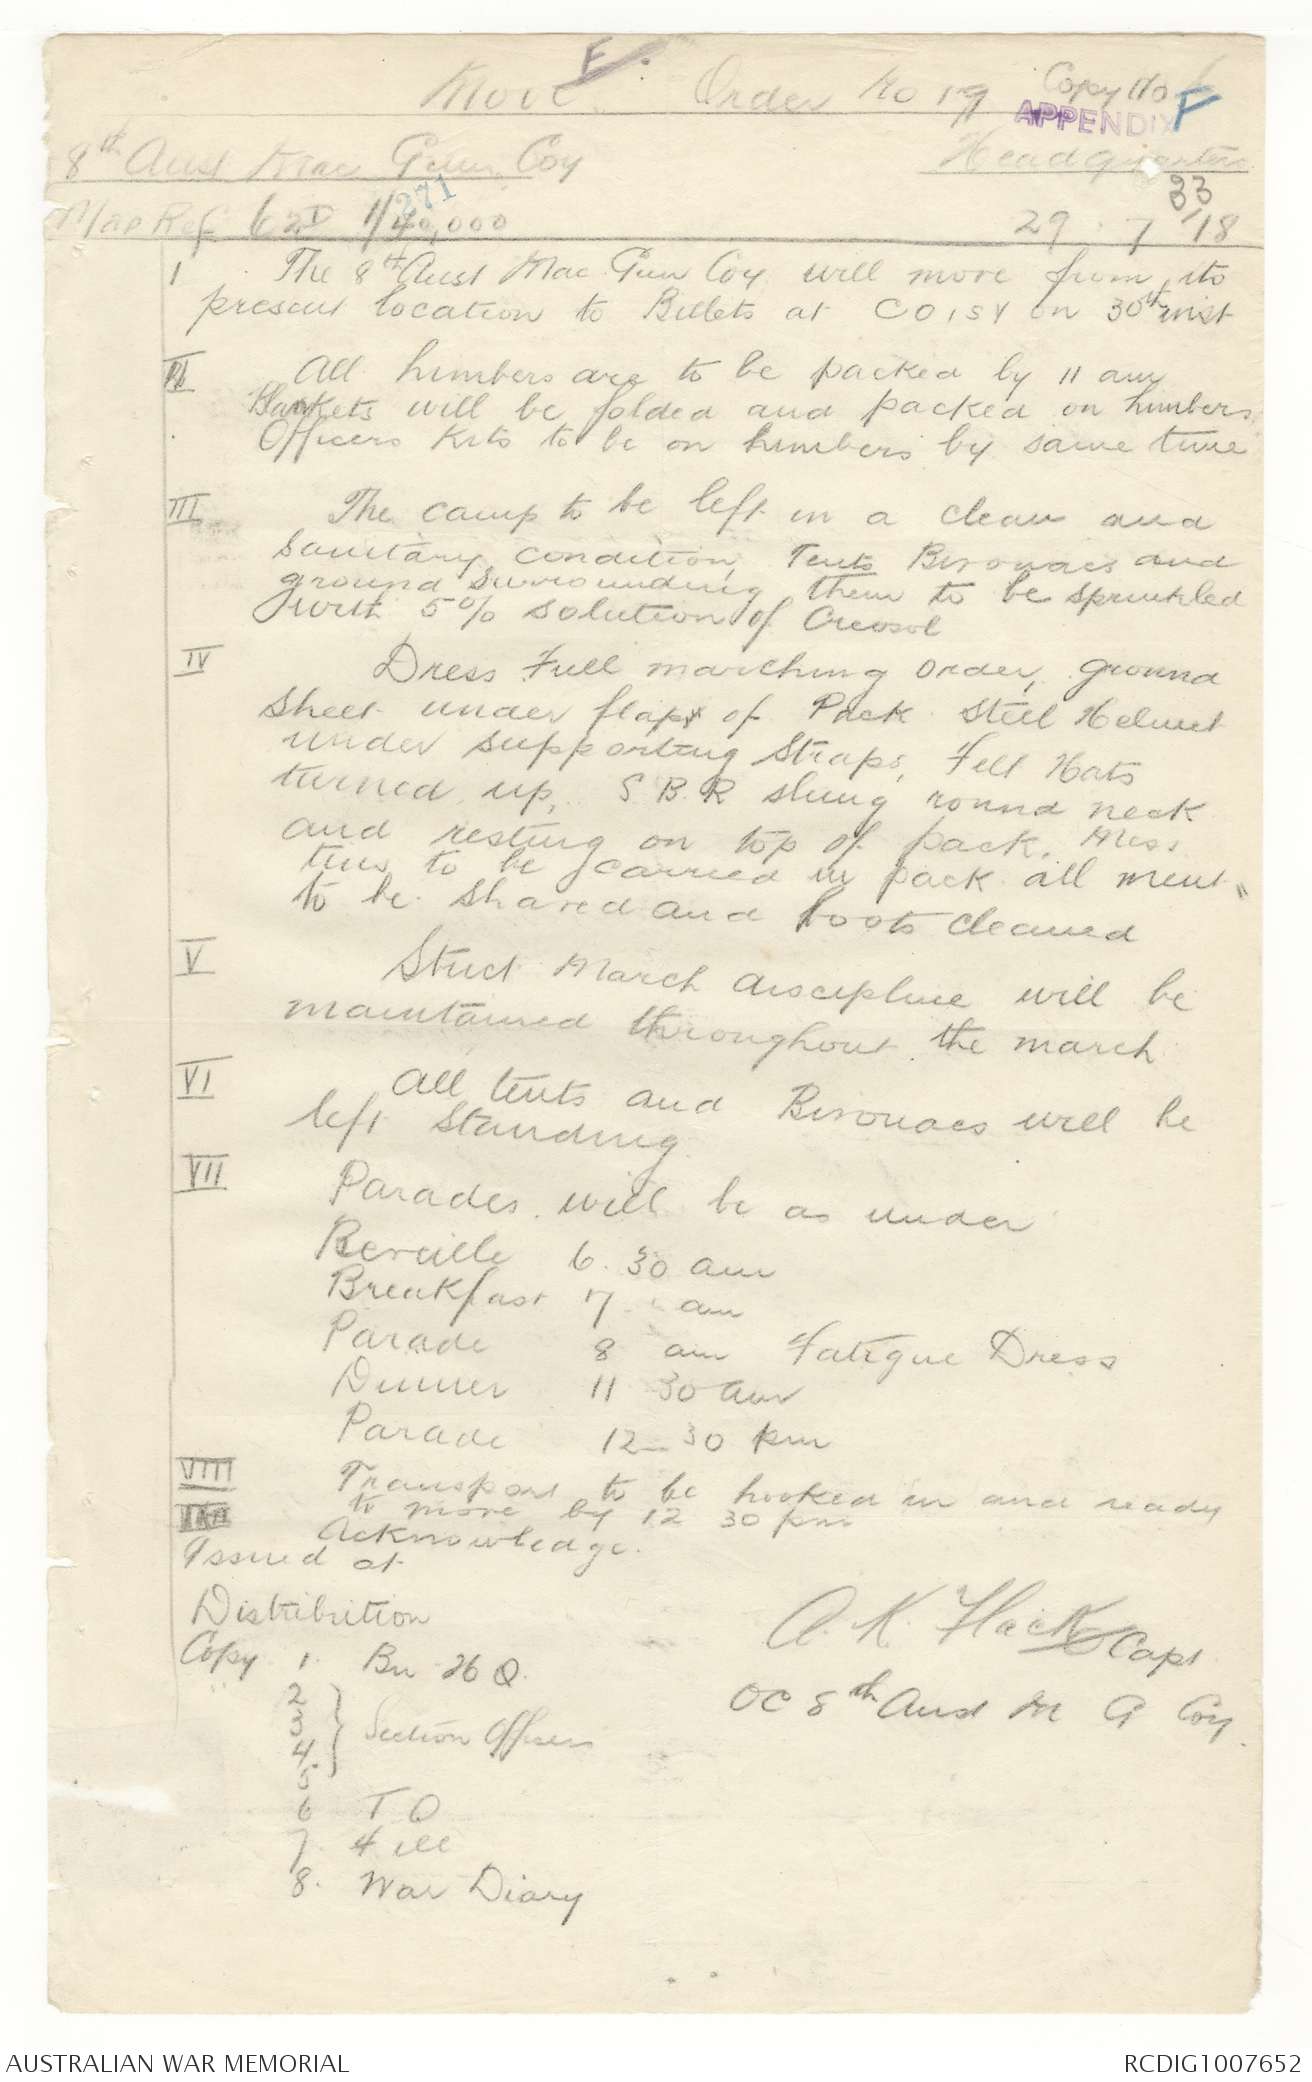 F
Move Order No 19 Copy No
APPENDIX F
8th Aust Mac Gun Coy Headquarters
271 33
Map Ref 62D 1/40,000 29.7.18
I The 8th Aust Mac Gun Coy will move from its
present location to Billets at COISY on 30th inst
II All limbers are to be packed by 11 am
Blankets will be folded and packed on limbers
Officers Kits to be on limbers by same time
III The camp to be left in a clean and
sanitary condition, Tents Bivouacs and
ground surrounding them to be sprinkled
with 5% solution of Creosol
IV Dress Full marching order, ground
sheet under flaps of Pack Steel Helmet
under supporting straps, Felt Hats
turned up, S B R slung round neck
and resting on top of pack. Mess
tins to be carried in pack all men
to be shaved and boots cleaned
V Strict March discipline will be
maintained throughout the march
VI All tents and Bivouacs will be
left standing
VII Parades will be as under
Reveille 6.30 am
Breakfast 7 am
Parade 8 am Fatigue Dress
Dinner 11 30 am
Parade 12-30 pm
VIII Transport to be hooked in and ready
to move by 12 30 pm
Acknowledge.
Issued at
Distribution
A. K. Flack Capt
Copy 1. Bn HQ.
OC 8th Aust M G Coy.
2
3
4 Section Officers
5
6 T O
7 File
8. War Diary
AUSTRALIAN WAR MEMORIAL RCDIG1007652